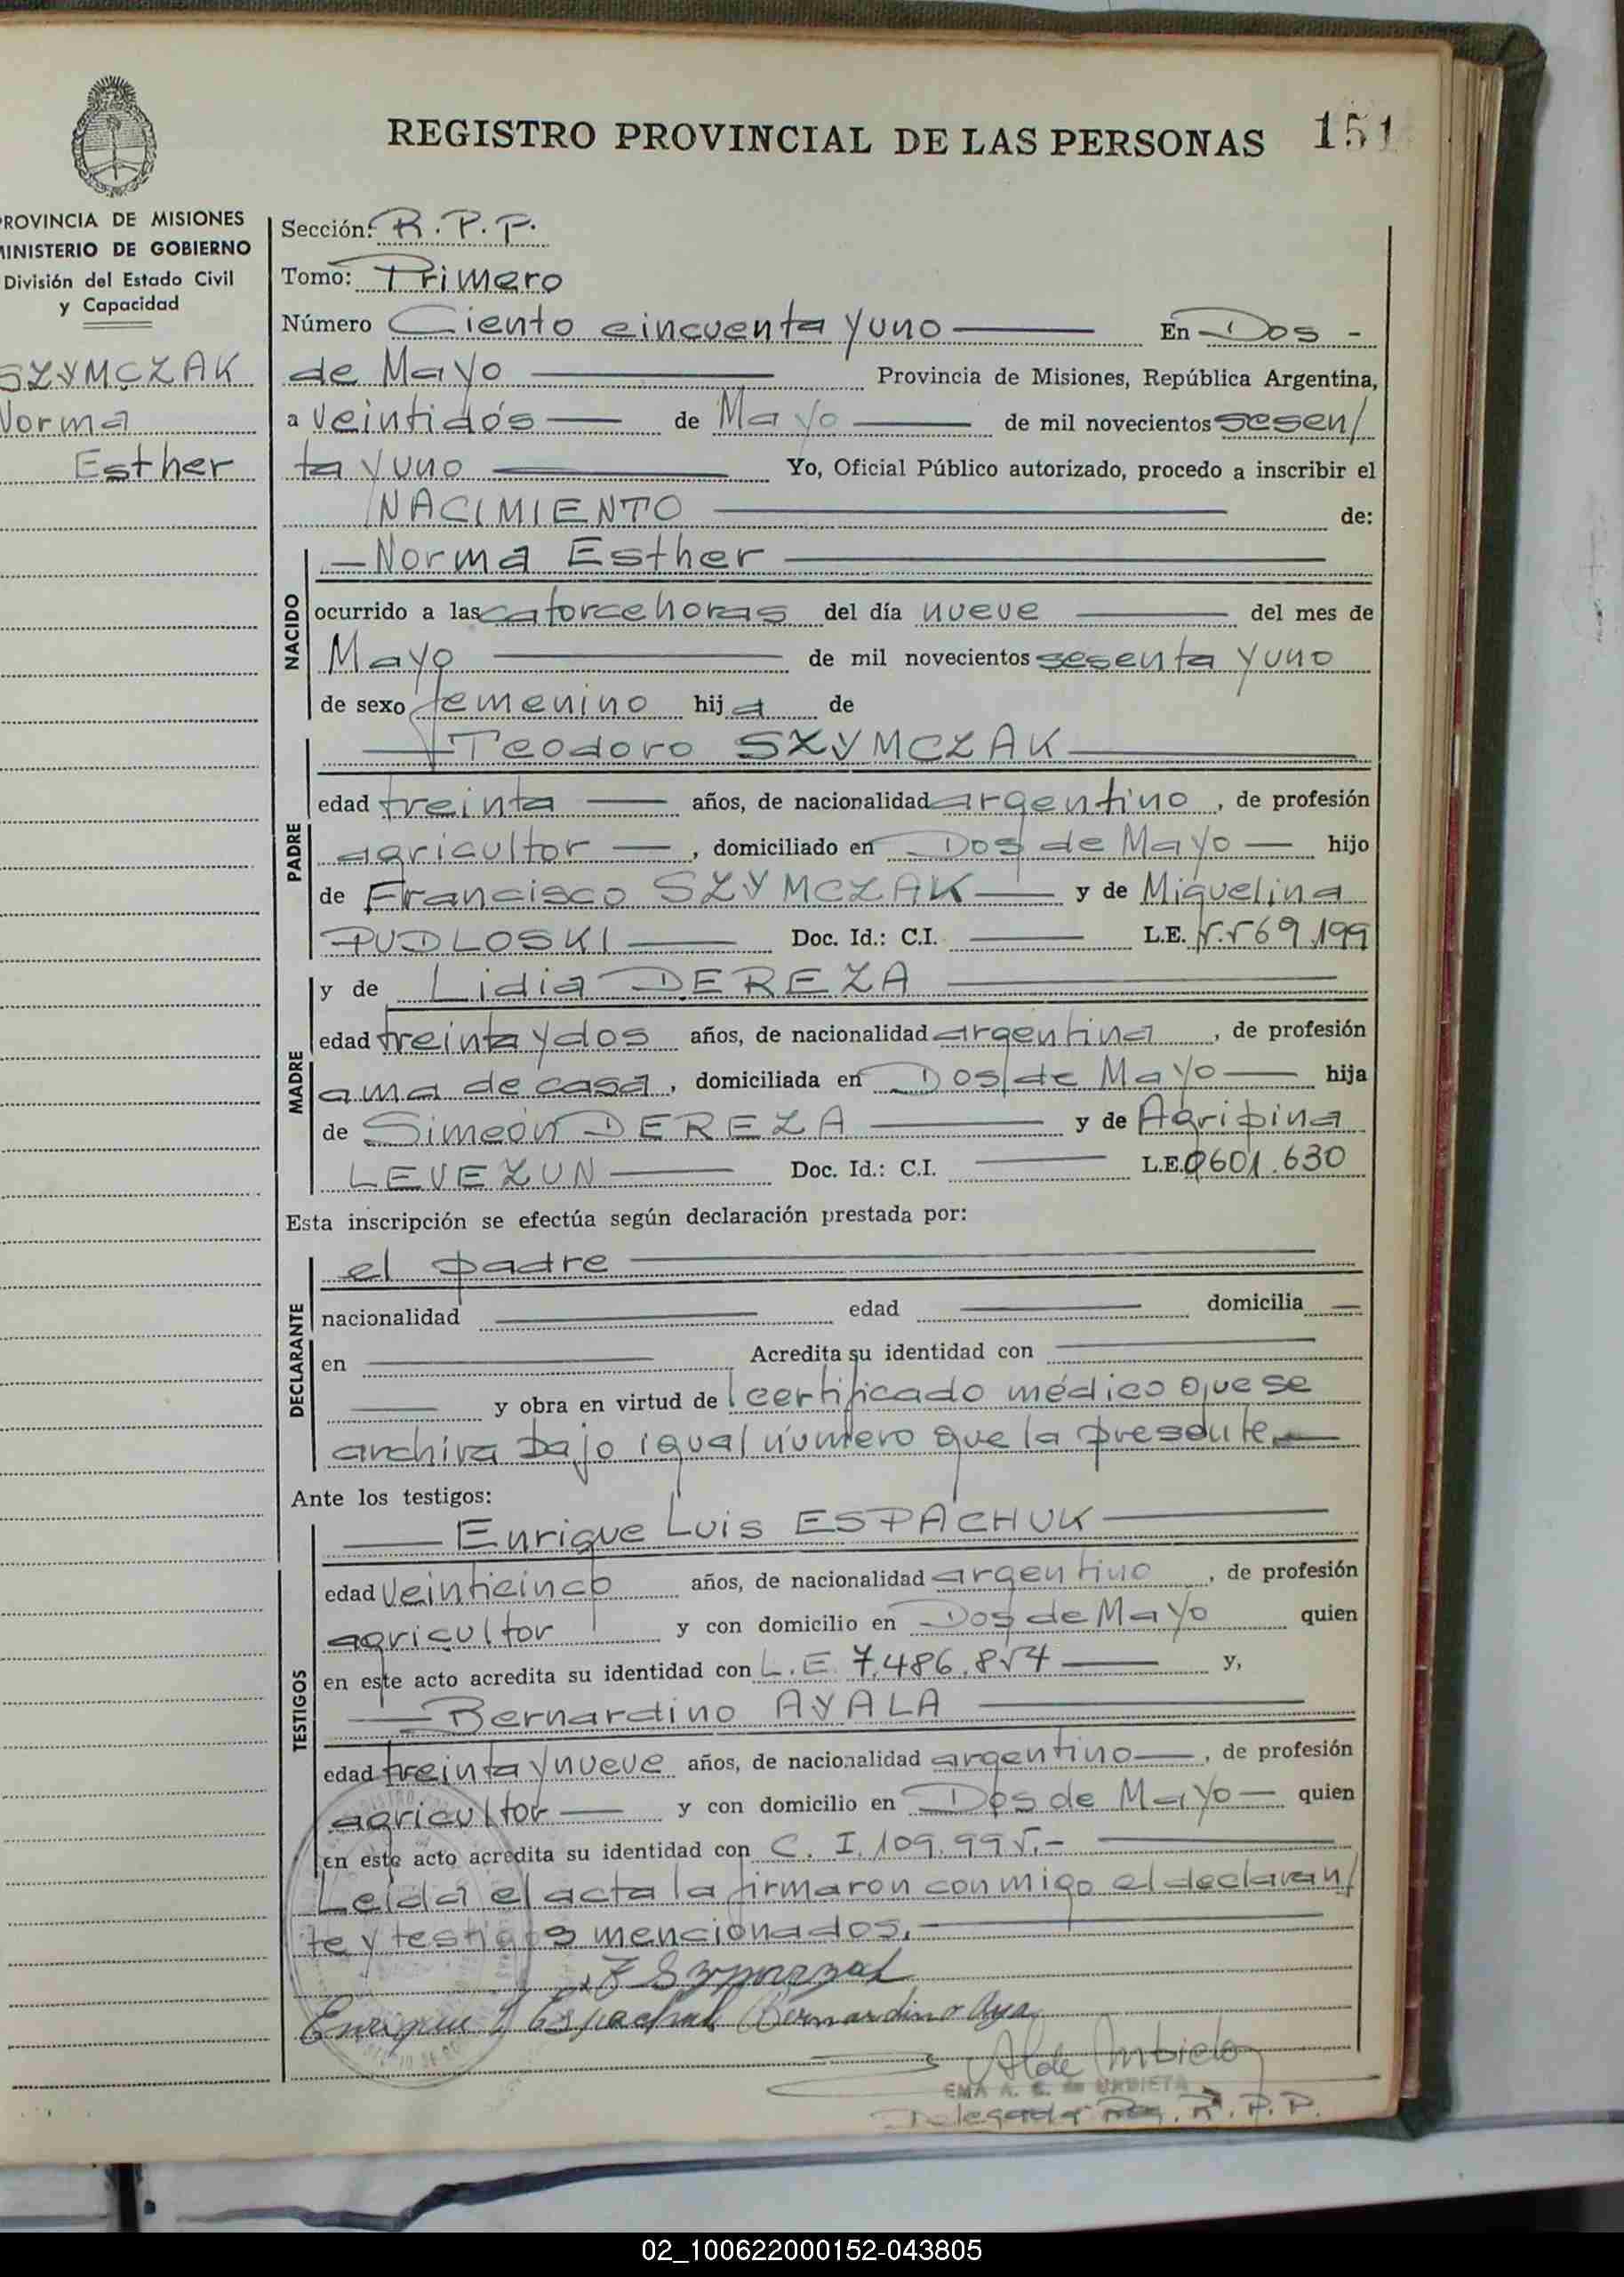 REGISTRO PROVINCIAL DE LAS PERSONAS 151
PROVINCIA DE MISIONES
MINISTERIO DE GOBIERNO
División del Estado Civil
y Capacidad
SZYMCZAK
Norma
Esther
Sección: R. P. P.
Tomo: Primero
Número Ciento cincuenta y uno En Dos -
de Mayo Provincia de Misiones, República Argentina,
a veintidós de Mayo de mil novecientos sesen/
ta y uno Yo, Oficial Público autorizado, procedo a inscribir el
NACIMIENTO de:
NACIDO
Norma Esther
ocurrido a las catorce horas del día nueve del mes de
Mayo de mil novecientos sesenta y uno
de sexo femenino hija de
PADRE
Teodoro SZYMCZAK
edad treinta años, de nacionalidad argentino, de profesión
agricultor, domiciliado en Dos de Mayo hijo
de Francisco SZYMCZAK y de Miguelina
PUDLOSKI Doc. Id.: C.I. L.E. 569.199
MADRE
y de Lidia DEREZA
edad treinta y dos años, de nacionalidad argentina, de profesión
ama de casa, domiciliada en Dos de Mayo hija
de Simeón DEREZA y de Agripina
LEVEZUN Doc. Id.: C.I. L.E. 0601.630
Esta inscripción se efectúa según declaración prestada por:
DECLARANTE
el padre
nacionalidad edad domicilia
en Acredita su identidad con
y obra en virtud del certificado médico que se
archiva bajo igual número que la presente.
Ante los testigos:
TESTIGOS
Enrique Luis ESPACHUK
edad veinticinco años, de nacionalidad argentino, de profesión
agricultor y con domicilio en Dos de Mayo quien
en este acto acredita su identidad con L.E. 7.486.854 y,
Bernardino AYALA
edad treinta y nueve años, de nacionalidad argentino, de profesión
agricultor y con domicilio en Dos de Mayo quien
en este acto acredita su identidad con C. I. 109.995.-
Leida el acta la firmaron conmigo el declaran/
te y testigos mencionados.
Enrique L Espachuk Bernardino Aya
EMA A. E. de URBIETA
Delegada R. P. P.
02_100622000152-043805